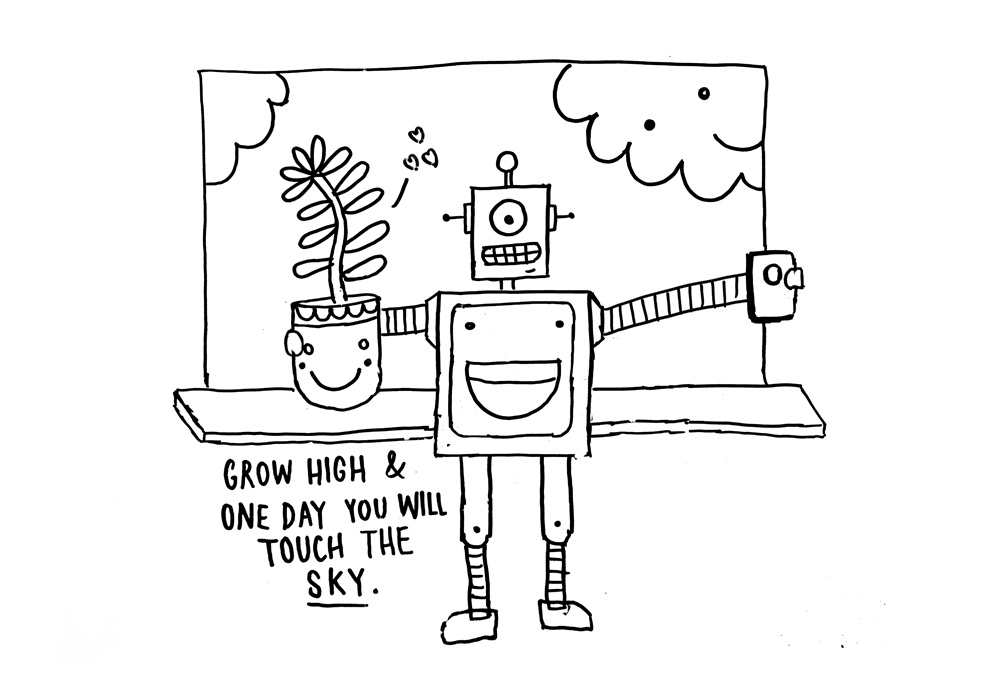 GROW HIGH &
ONE DAY YOU WILL
TOUCH THE
SKY.